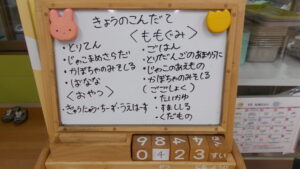 きょうのこんだて
〈ももぐみ〉
・とりてん
・じゃこまめさらだ
・かぼちゃのみそしる
・ばなな
〈おやつ〉
・ぎゅうにゅう・ちーず・うえはーす
・ごはん
・とりだんごのあまからに
・じゃこのあえもの
・かぼちゃのみそしる
〈ごごしょく〉
・たいがゆ
・すましじる
・くだもの
4 2 3 すい